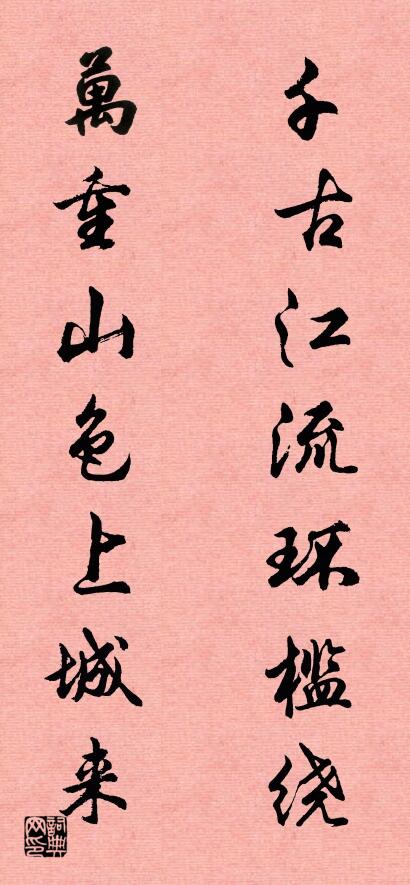 千古江流环槛绕
萬重山色上城来
詞典网